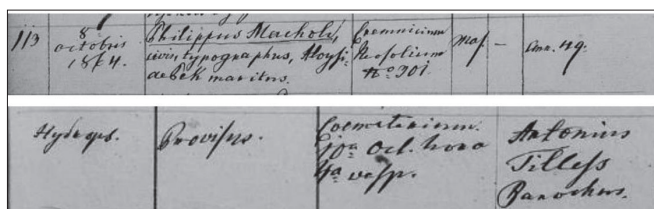 113
8
octobris
1874.
Philippus Macholy,
civis, typographus, Aloysi
maritus.
Neosolium
No 301.
Mas.
—
Ann. 49.
Hydrops.
Provisus.
Coemeterium.
10a Oct. hora
4a vesp.
Antonius
Parochus.